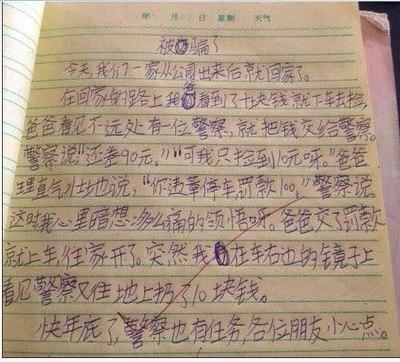 年 月 日 星期 天气
被骗了
今天,我们一家从公园出来后就回家了。
在回家的路上我看到了十块钱就下车去捡,
爸爸看见不远处有一位警察,就把钱交给警察。
警察说“还差90元。”“可我只捡到10元呀。”爸爸
理直气壮地说,“你违章停车罚款100,”警察说。
这时我心里暗想:多么痛的领悟呀。爸爸交了罚款
就上车往家开了。突然我在车右边的镜子上
看见警察又往地上扔了10块钱。
快年死了,警察也有任务,各位朋友小心点。